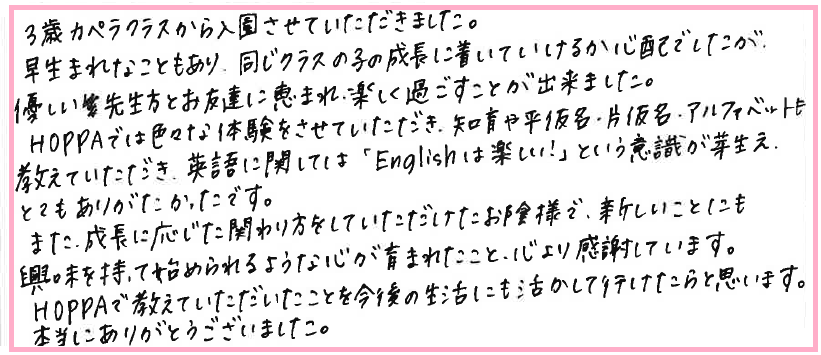 3歳カペラクラスから入園させていただきました。
早生まれなこともあり、同じクラスの子の成長に着いていけるか心配でしたが、
優しい先生方とお友達に恵まれ、楽しく過ごすことが出来ました。
HOPPAでは色々な体験をさせていただき、知育や平仮名・片仮名・アルファベットも
教えていただき、英語に関しては「Englishは楽しい!」という意識が芽生え、
とてもありがたかったです。
また、成長に応じた関わり方をしていただけたお陰様で、新しいことにも
興味を持って始められるような心が育まれたこと、心より感謝しています。
HOPPAで教えていただいたことを今後の生活にも活かして行けたらと思います。
本当にありがとうございました。